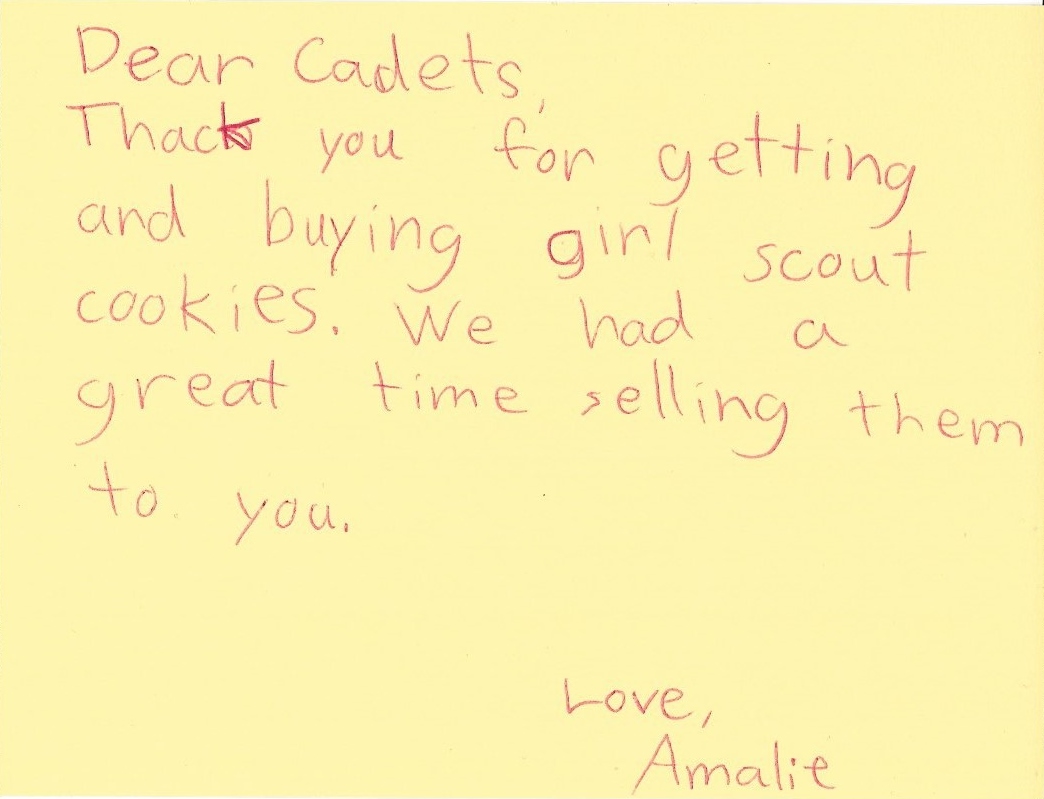 Dear Cadets,
Thack you for getting
and buying girl scout
cookies. We had a
great time selling them
to you.
Love,
Amalie